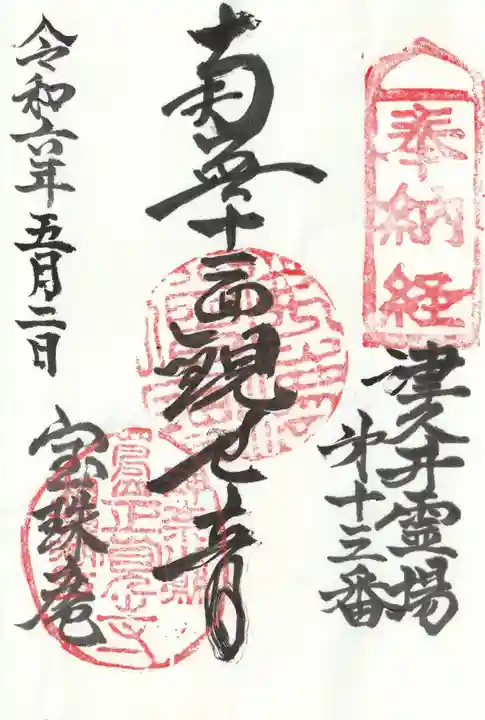 奉納経
津久井霊場
第十三番
南無十一面観世音
令和六年五月二日
宝珠庵